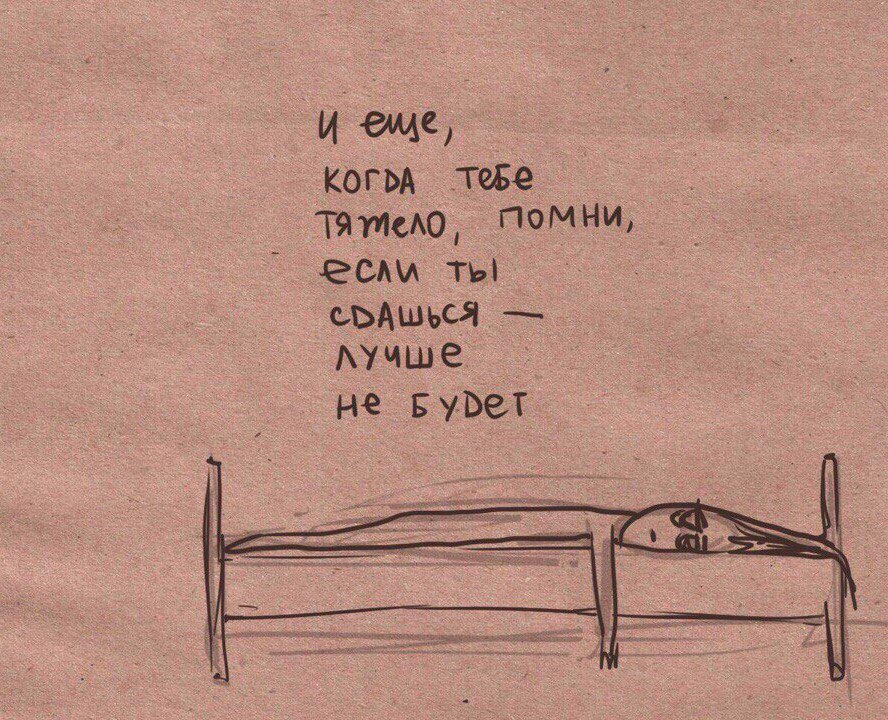 и еще,
когда тебе
тяжело, помни,
если ты
сдашься —
лучше
не будет